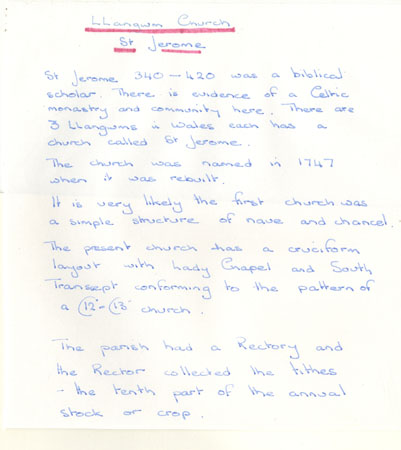 LLangwm Church
St Jerome
St Jerome 340 - 420 was a biblical
scholar. There is evidence of a Celtic
monastry and community here. There are
3 Llangwms in Wales each has a
church called St Jerome.
The church was named in 1747
when it was rebuilt.
It is very likely the first church was
a simple structure of nave and chancel.
The present church has a cruciform
layout with Lady Chapel and South
Transept conforming to the pattern of
a 12c - 13c church.
The parish had a Rectory and
the Rector collected the tithes
- the tenth part of the annual
stock or crop.